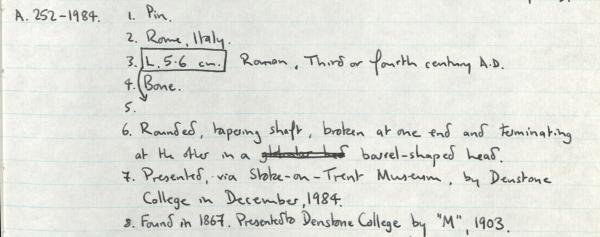 A. 252-1984. 1. Pin.
2. Rome, Italy.
3. L. 5.6 cm. Roman, Third or fourth century A.D.
4. Bone.
5.
6. Rounded, tapering shaft, broken at one end and terminating
at the other in a barrel-shaped head.
7. Presented, via Stoke-on-Trent Museum, by Denstone
College in December, 1984.
8. Found in 1867. Presented to Denstone College by "M", 1903.